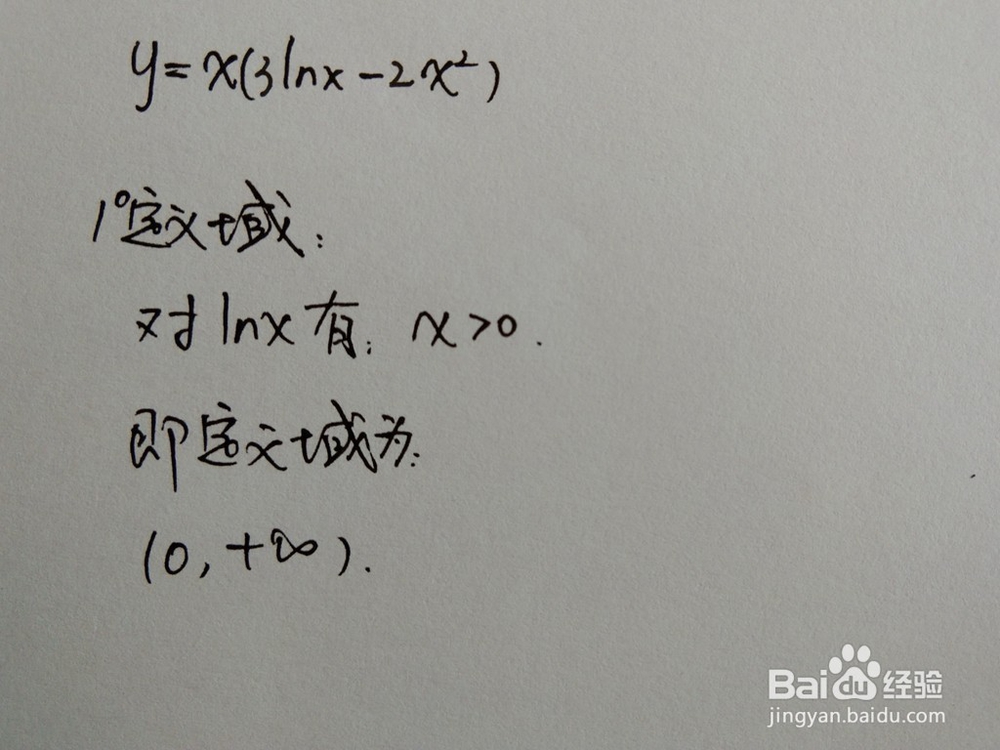 y=x(3lnx-2x²)
1°定义域:
对lnx有: x>0.
即定义域为:
(0,+∞).
Baidu经验
jingyan.baidu.com